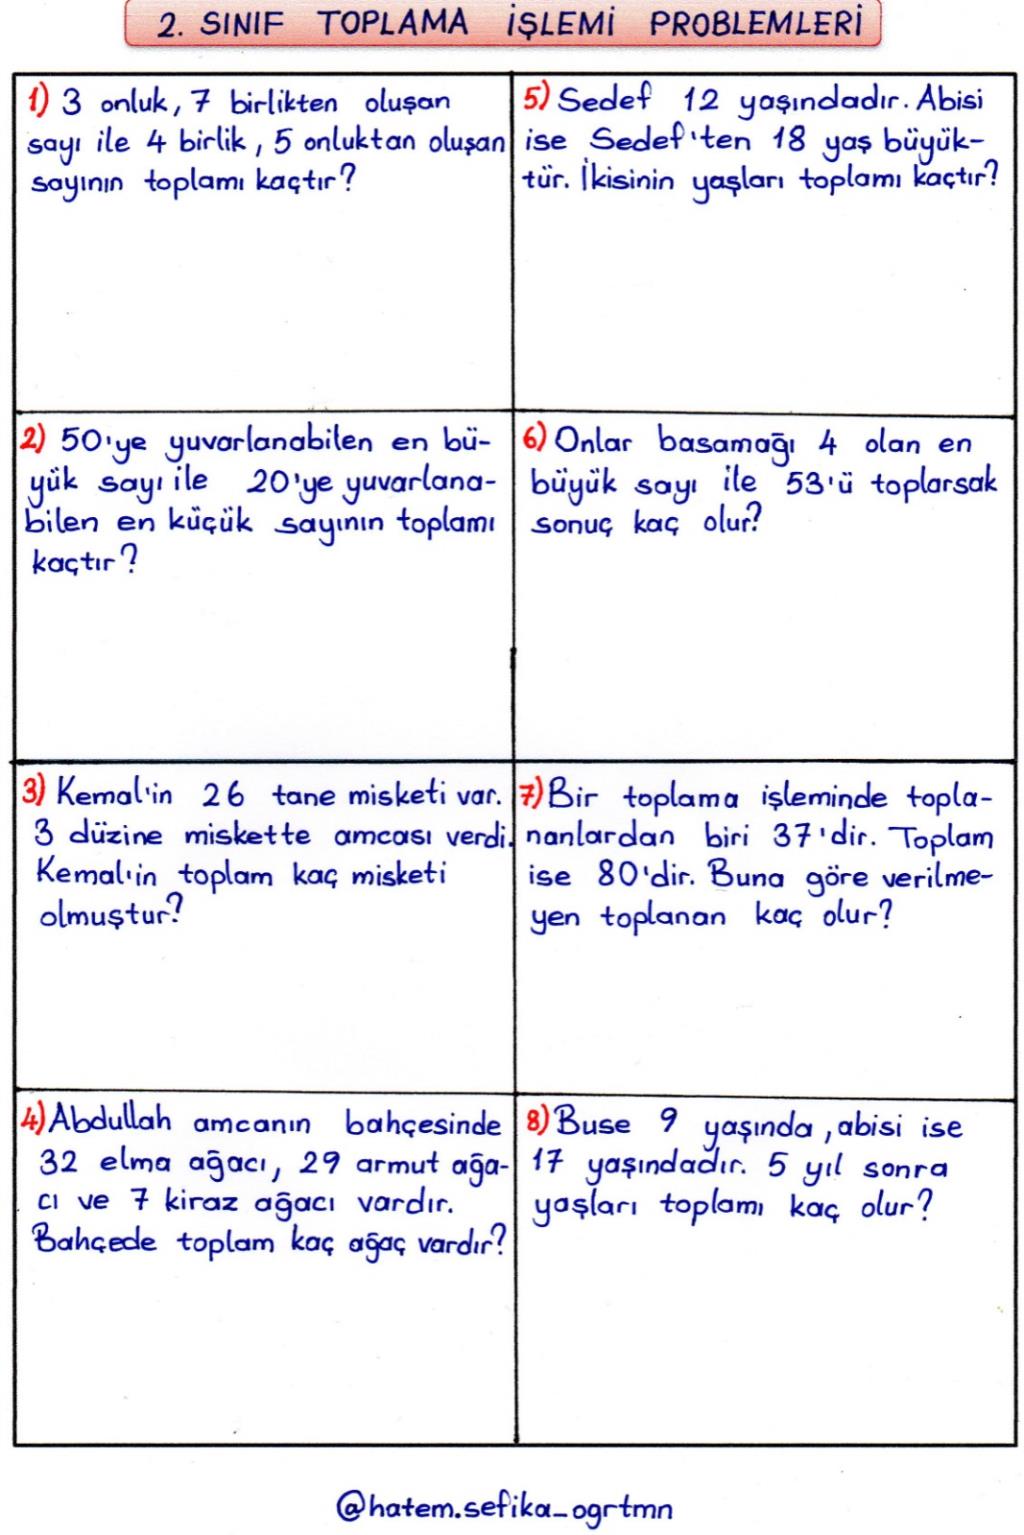 2. SINIF TOPLAMA İŞLEMİ PROBLEMLERİ
1) 3 onluk, 7 birlikten oluşan
sayı ile 4 birlik, 5 onluktan oluşan
sayının toplamı kaçtır?
2) 50'ye yuvarlanabilen en bü-
yük sayı ile 20'ye yuvarlana-
bilen en küçük sayının toplamı
kaçtır?
3) Kemal'in 26 tane misketi var.
3 düzine miskette amcası verdi.
Kemal'in toplam kaç misketi
olmuştur?
4) Abdullah amcanın bahçesinde
32 elma ağacı, 29 armut ağa-
cı ve 7 kiraz ağacı vardır.
Bahçede toplam kaç ağaç vardır?
5) Sedef 12 yaşındadır. Abisi
ise Sedef'ten 18 yaş büyük-
tür. İkisinin yaşları toplamı kaçtır?
6) Onlar basamağı 4 olan en
büyük sayı ile 53'ü toplarsak
sonuç kaç olur?
7) Bir toplama işleminde topla-
nanlardan biri 37'dir. Toplam
ise 80'dir. Buna göre verilme-
yen toplanan kaç olur?
8) Buse 9 yaşında, abisi ise
17 yaşındadır. 5 yıl sonra
yaşları toplamı kaç olur?
@hatem.sefika_ogrtmn